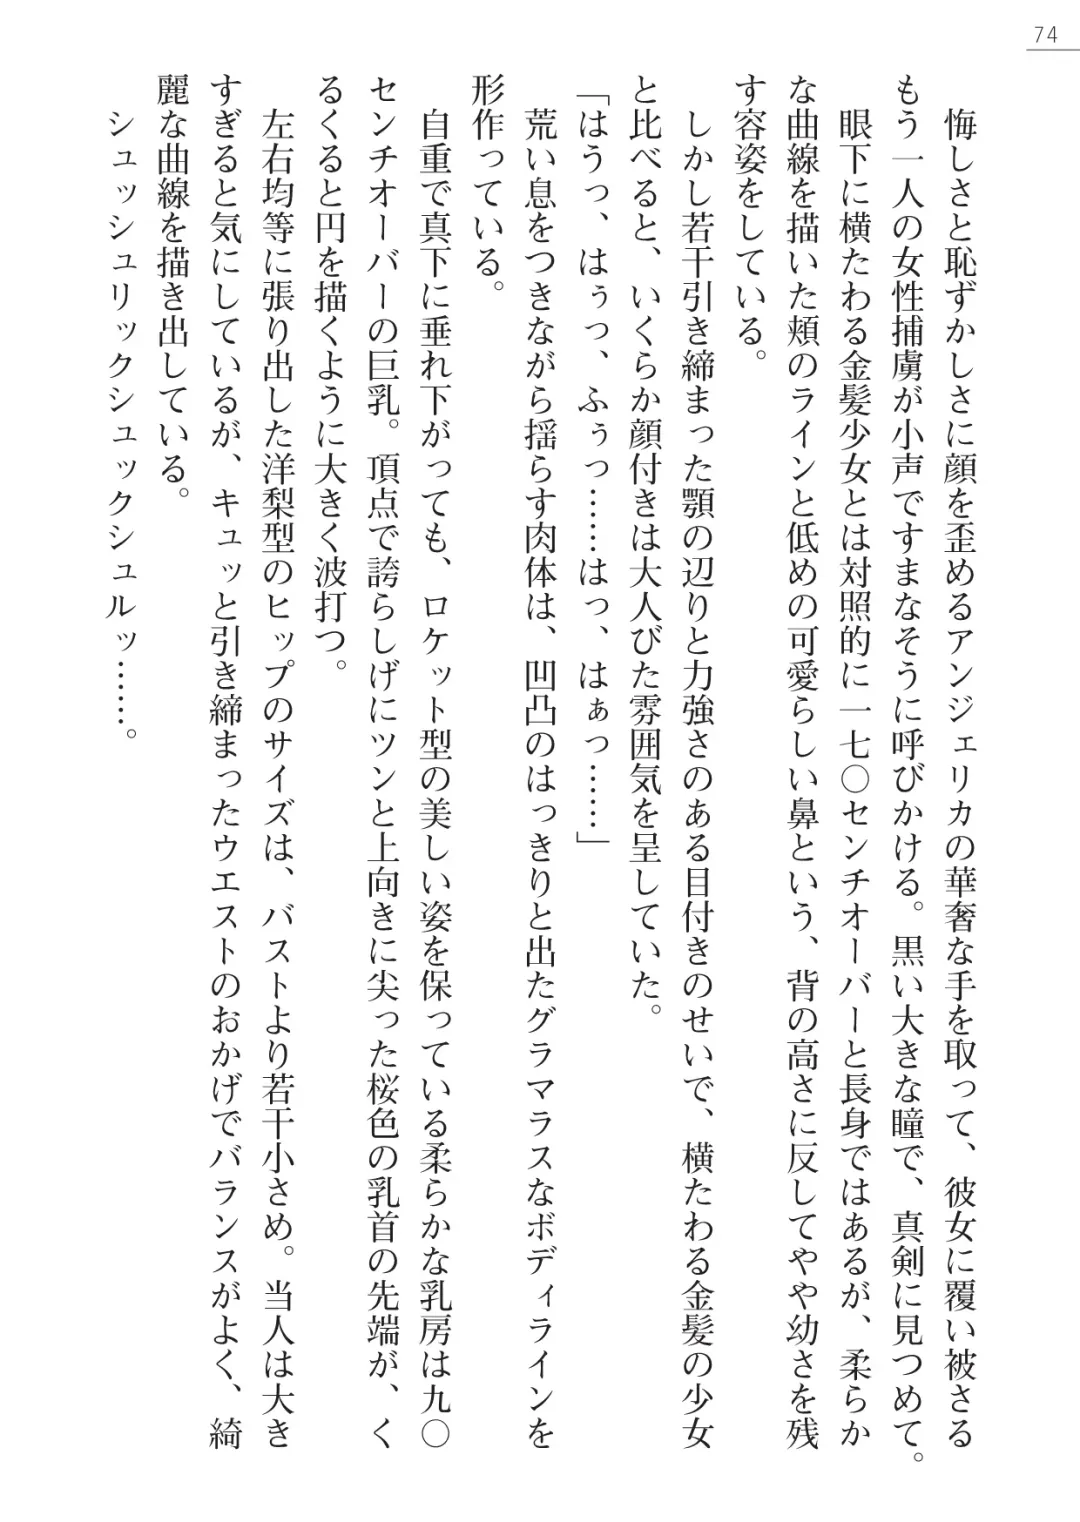 74
悔しさと恥ずかしさに顔を歪めるアンジェリカの華奢な手を取って、彼女に覆い被さる
もう一人の女性捕虜が小声ですまなそうに呼びかける。黒い大きな瞳で、真剣に見つめて。
眼下に横たわる金髪少女とは対照的に一七〇センチオーバーと長身ではあるが、柔らか
な曲線を描いた頬のラインと低めの可愛らしい鼻という、背の高さに反してやや幼さを残
す容姿をしている。
しかし若干引き締まった顎の辺りと力強さのある目付きのせいで、横たわる金髪の少女
と比べると、いくらか顔付きは大人びた雰囲気を呈していた。
「はうっ、はぅっ、ふぅっ……はっ、はぁっ……」
荒い息をつきながら揺らす肉体は、凹凸のはっきりと出たグラマラスなボディラインを
形作っている。
自重で真下に垂れ下がっても、ロケット型の美しい姿を保っている柔らかな乳房は九〇
センチオーバーの巨乳。頂点で誇らしげにツンと上向きに尖った桜色の乳首の先端が、く
るくると円を描くように大きく波打つ。
左右均等に張り出した洋梨型のヒップのサイズは、バストより若干小さめ。当人は大き
すぎると気にしているが、キュッと引き締まったウエストのおかげでバランスがよく、綺
麗な曲線を描き出している。
シュッシュリックシュックシュルッ……。